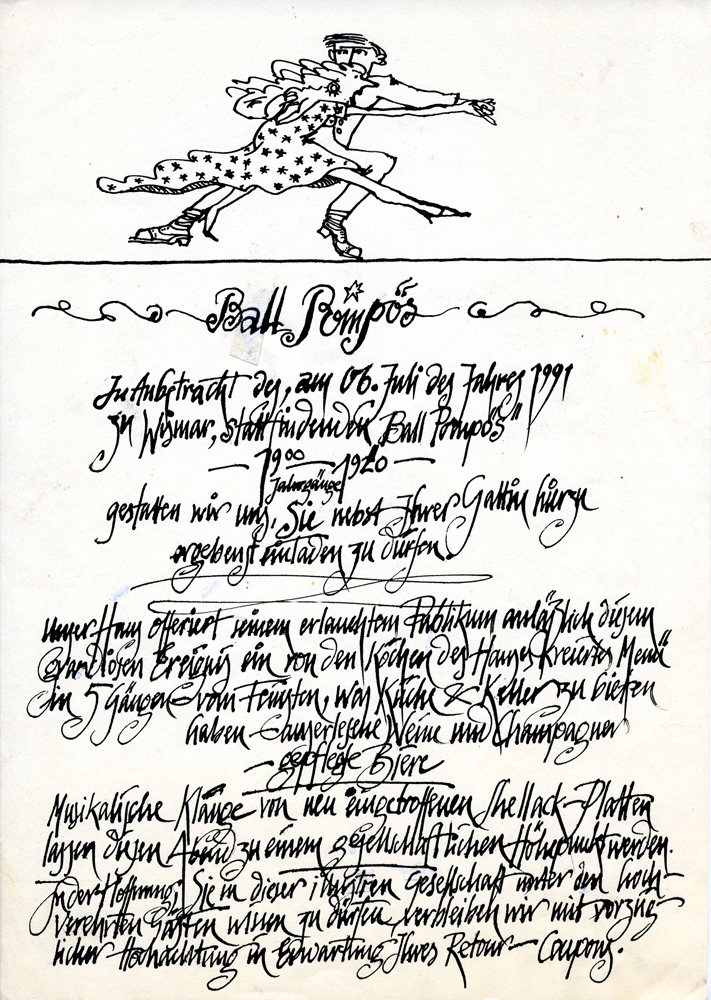 Ball Pompös
In Anbetracht des, am 06. Juli des Jahres 1991
zu Wismar, stattfindenden "Ball Pompös"
— 19oo — 1920 —
Jahrgänge
gestatten wir uns, Sie nebst Ihrer Gattin hierzu
ergebenst einladen zu dürfen.
Unser Haus offeriert seinem erlauchtem Publikum anläßlich diesem
grandiosen Ereignis ein von den Köchen des Hauses kreiertes Menü
in 5 Gängen - vom Feinsten, was Küche & Keller zu bieten
haben - auserlesene Weine und Champagner
- gepflegte Biere
Musikalische Klänge von neu eingetroffenen Shellack-Platten
lassen diesen Abend zu einem gesellschaftlichen Höhepunkt werden.
In der Hoffnung, Sie in dieser illustren Gesellschaft unter den hoch-
verehrten Gästen wissen zu dürfen verbleiben wir mit vorzüg-
licher Hochachtung in Erwartung Ihres Retour - Coupons.